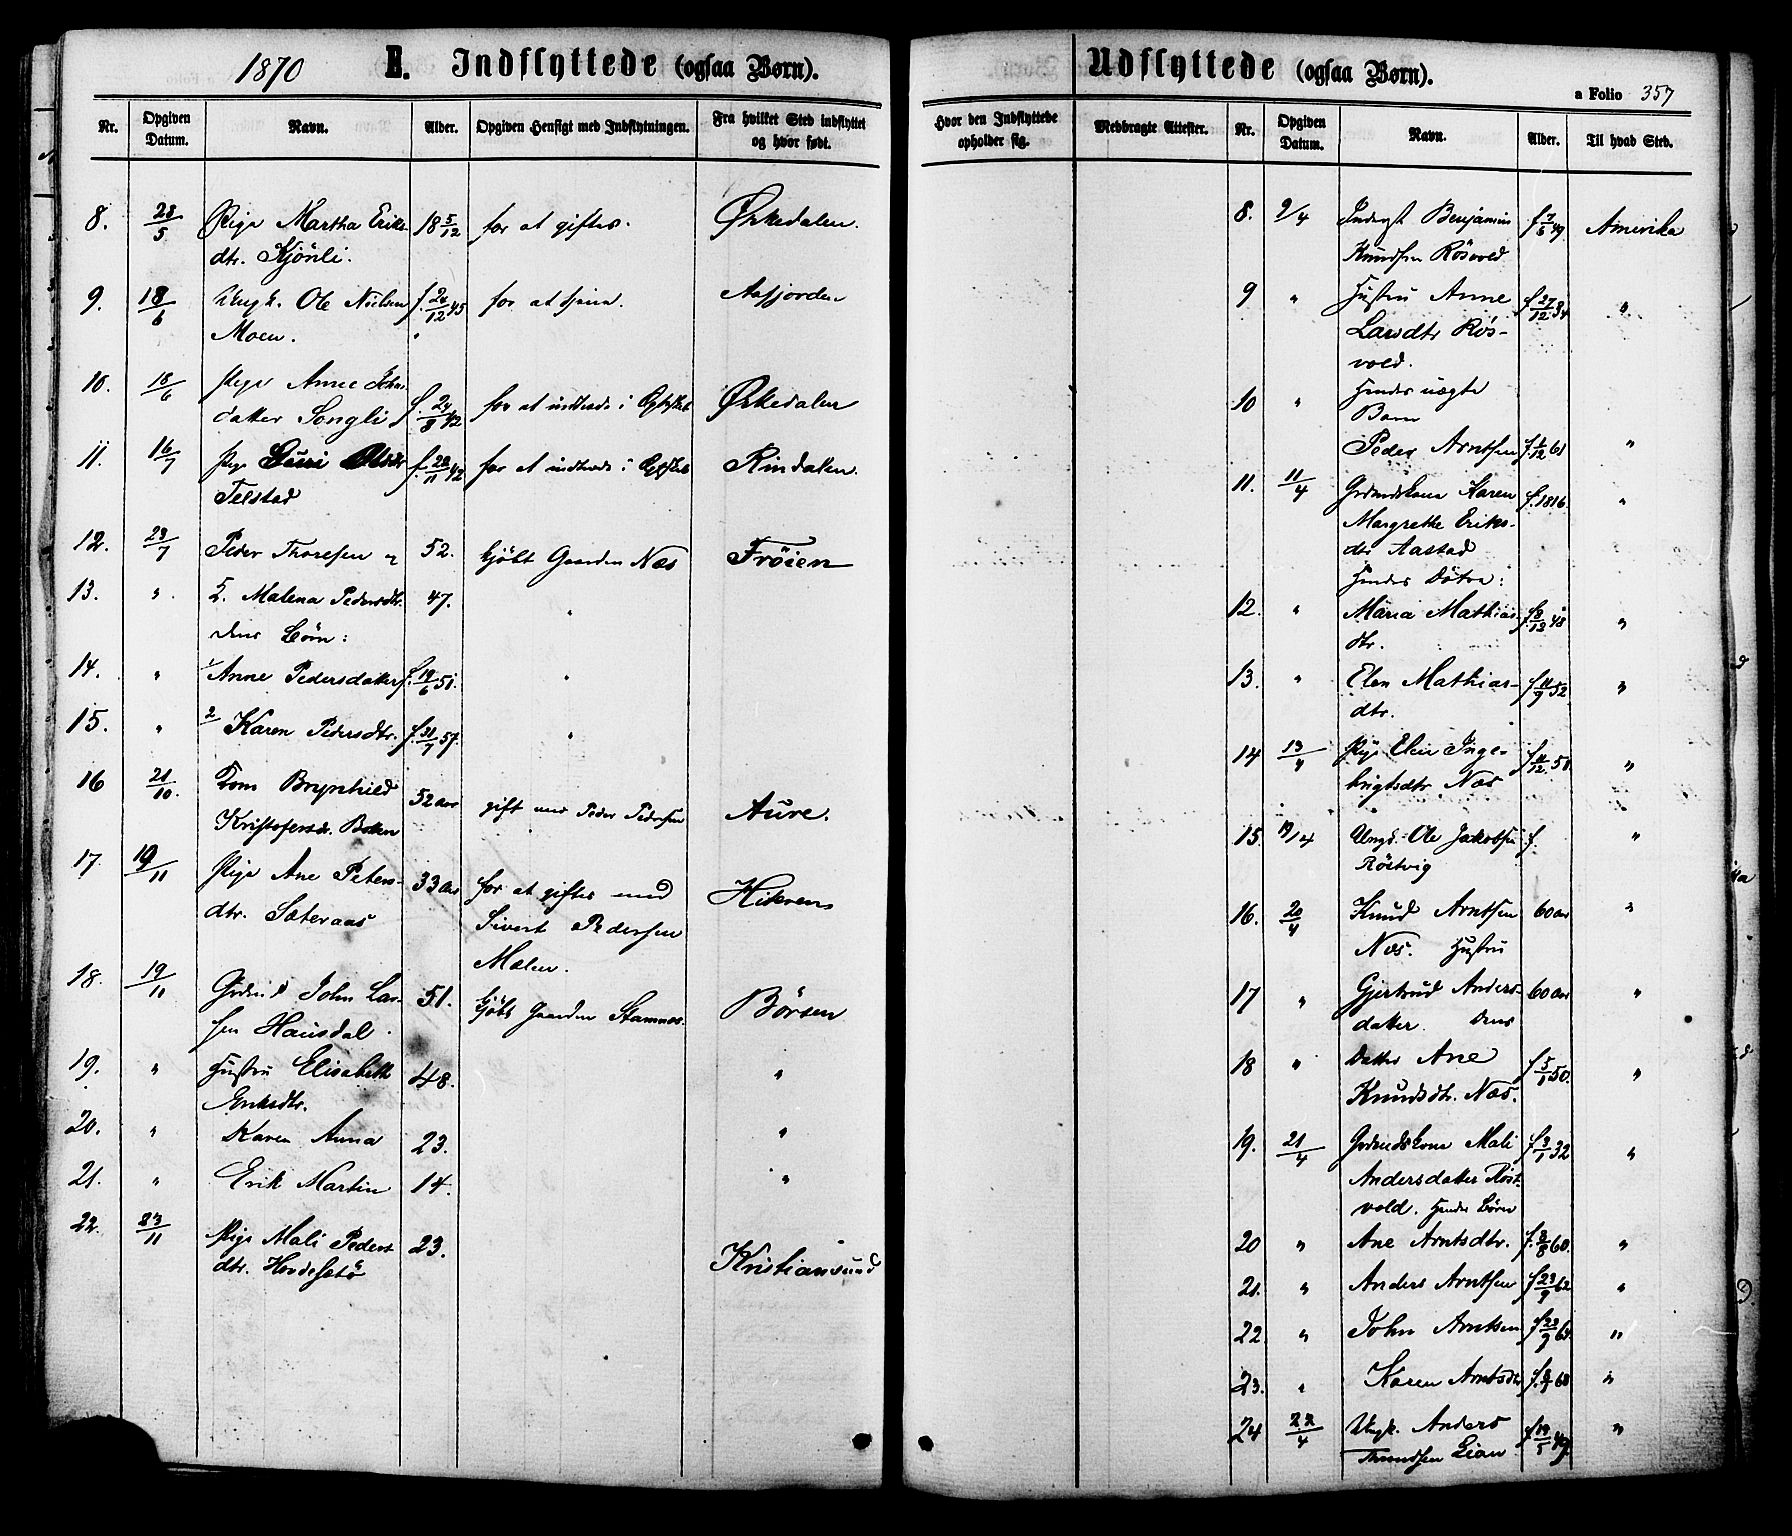 1870 E. Indflyttede (ogsaa Børn).
Nr. Opgiven Datum. Navn. Alder. Opgiven Hensigt med Indflytningen. Fra hvilket Sted indflyttet og hvor født.
8. 28/5 Pige Martha Eriks- 18 5/12 for at giftes. Ørkedalen.
dtr. Kjönli.
9. 18/6 Ungk. Ole Nielsen f. 24/12 45 for at tjene. Aafjorden
Moen.
10. 18/6 Pige Anne
datter Songli f. 24/8 42 for at indtræde i Ørkedalen
11. 16/7 Pige Guri Olsdtr f. 22/11 42 for at indtræde i Rindalen.
Telstad
12. 23/7 Peder Thoresen og 52. kjöbt Gaarden Næs Fröien
13. " Malena Pedersdtr. 47. "
deres Börn:
14. " 1 Anne Pedersdatter f. 19/6 51. "
15. " 2 Karen Pedersdtr. f. 31/7 57. "
16 21/10. Kone Brynhild 52 aar gift med Peder Pedersen Aure.
Kristofersdr.
17. 19/11 Pige Ane Peters- 33 aar for at giftes med Hitteren
dtr. Sæteraas Sivert Pedersen
Mælen.
18. 19/11 John Lar- 51. kjöbt Gaarden Stamnes. Börsen
sen Hausdal.
19. " Hustru Elisabeth 48. "
Eriksdtr.
20. " Karen Anna 23. "
21. " Erik Martin 14. "
22. 23/11 Pige Mali Peders- 23. Kristiansund
dtr.
Udflyttede (ogsaa Børn).
a Folio 357
Hvor den Indflyttede opholder sig. Medbragte Attester. Nr. Opgiven Datum. Navn. Alder. Til hvad Sted.
8. 9/4 Inderst Benjamin f. 7/5 49 Amerika
Knudsen Rösvold
9 " Hustru Anne f. 27/12 34 "
Larsdtr Rös-
vold.
10 " Hendes uægte
Barn
Peder Arntsen f. 1/12 61 "
11. 11/4 Gaardmkone Karen f. 1816. "
Margrethe Eriks-
dtr Aastad
Hendes Döttre:
12. " Maria Mathias- f. 8/12 48 "
dtr.
13. " Elen Mathias- f. 11/9 52 "
dtr.
14 13/4 Pige Elen Inge- f. 11/12 51 "
brigtsdtr Næs
15. 19/4 Ungk. Ole Jakobsen f. "
Röstvig
16. 20/4 Knud Arntsen 60 aar "
Næs. Hustru
17 " Gjertrud Anders- 60 aar "
datter. Deres
18 " Datter Ane f. 5/1 50. "
Knudsdtr. Næs.
19. 21/4 Mali f. 3/1 32 "
Andersdatter Röst-
vold. Hendes Börn
20 " Ane Arntsdtr. f. 8/8 60. "
21. " Anders Arntsen f. 23/9 62 "
22. " John Arntsen f. 22/9 "
23. " Karen Arntsdtr f. 68 "
24 22/4 Ungk. Anders f. 19/5 49 "
Throndsen Lian